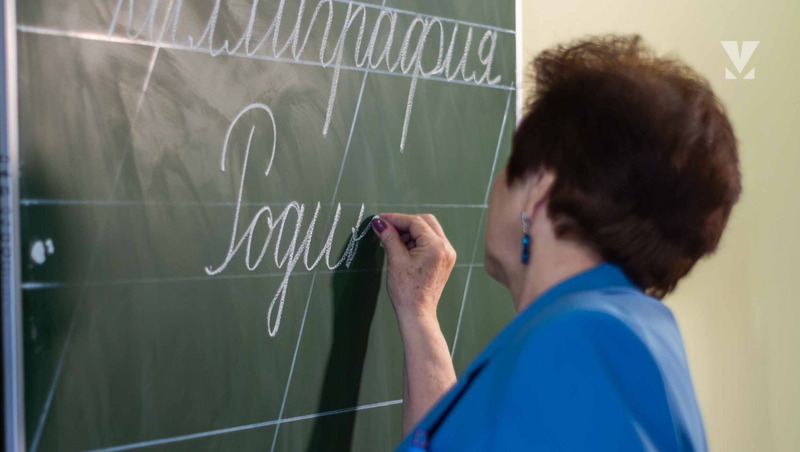 ллиграфия
Роди